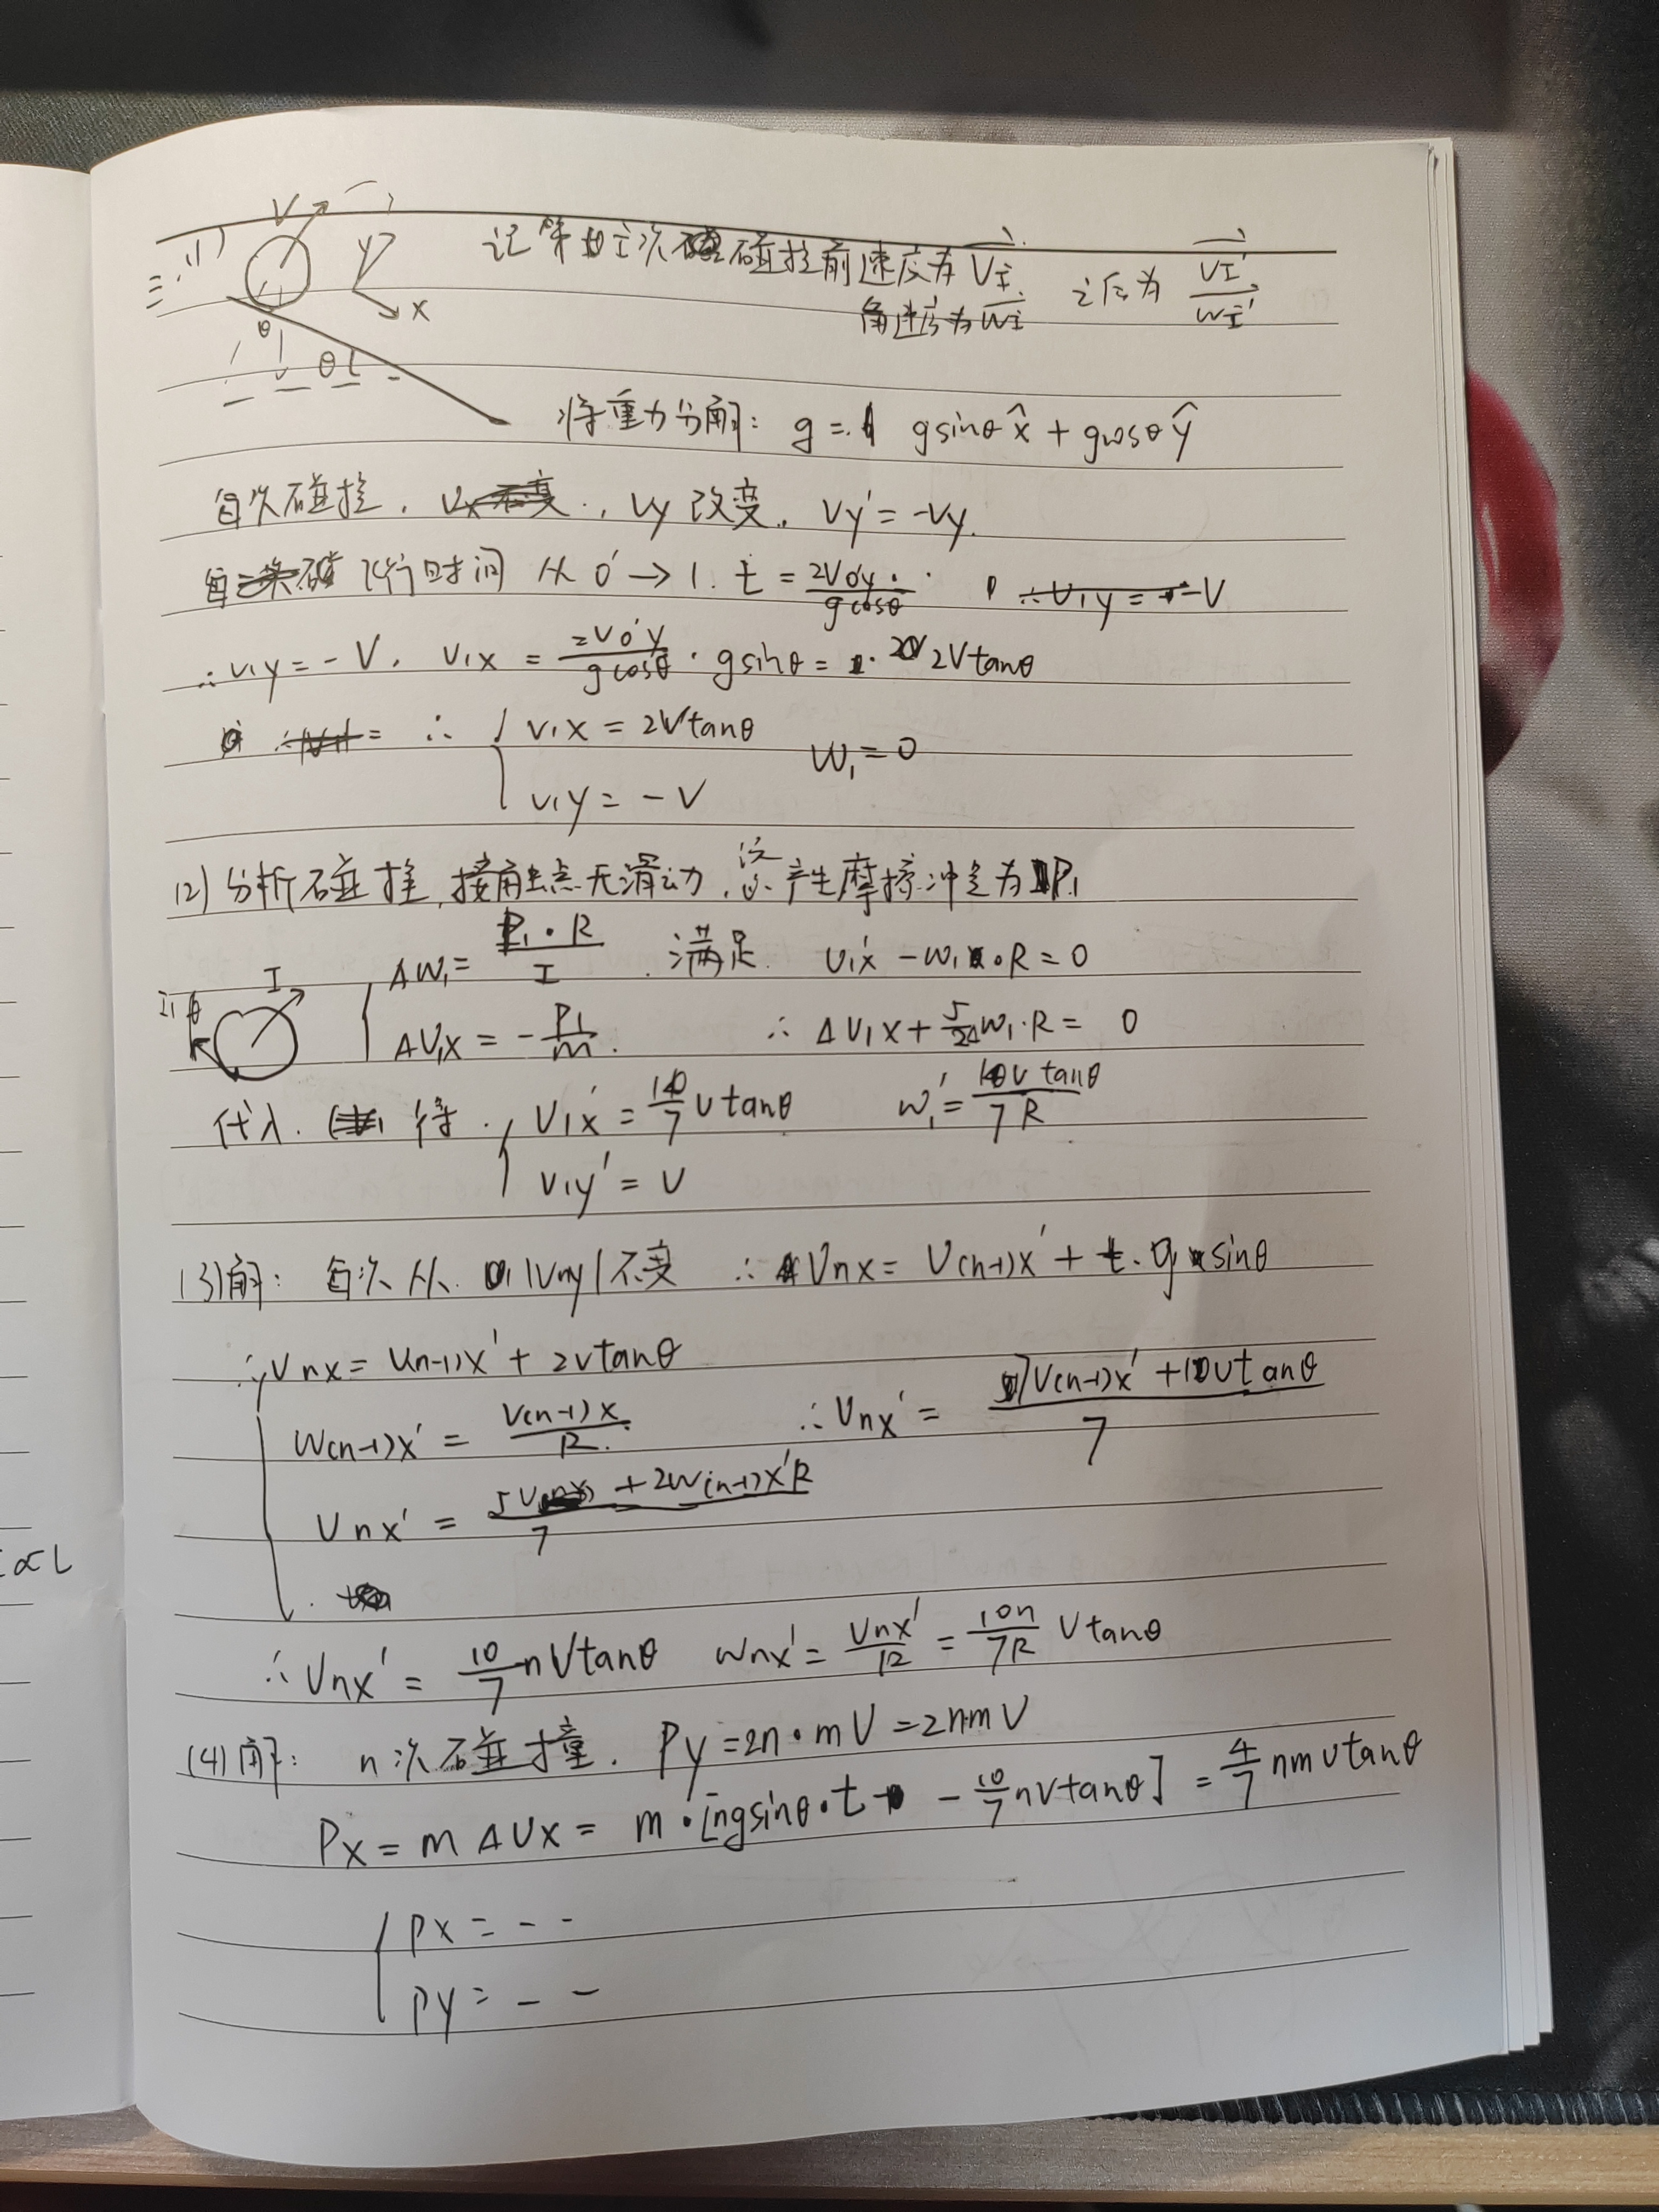 三.(1) V y x θ θ
记第i次碰撞前速度为Vi 之后为Vi'
角速度为wi wi'
将重力分解: g = gsinθ x̂ + gcosθ ŷ
每次碰撞. Vy改变. Vy' = -Vy.
每 飞行时间 从0' → 1. t = 2V0'y / gcosθ
∴ V1y = -V. V1x = 2V0'y / gcosθ · gsinθ = 2Vtanθ
∴ { V1x = 2Vtanθ W1 = 0
V1y = -V
(2) 分析碰撞, 接触点无滑动, 产生摩擦冲量为P1
I ΔW1 = P1·R / I . 满足. V1x' - W1·R = 0
ΔV1x = - P1/m. ∴ ΔV1x + 2/5 W1·R = 0
代入. 得. { V1x' = 10/7 Vtanθ W1' = 10Vtanθ / 7R
V1y' = V
(3)解: 每次从 |Vny|不变 ∴ Vnx = V(n-1)x' + t·gsinθ
∴ { Vnx = V(n-1)x' + 2Vtanθ
W(n-1)x' = V(n-1)x / R. ∴ Vnx' = 7V(n-1)x' + 10Vtanθ / 7
Vnx' = 5Vnx + 2W(n-1)x'R / 7
∴ Vnx' = 10/7 nVtanθ Wnx' = Vnx'/R = 10n/7R Vtanθ
(4)解: n次碰撞. Py = 2n·mV = 2nmV
Px = mΔVx = m·[ngsinθ·t - 10/7 nVtanθ] = 4/7 nmVtanθ
{ Px = - -
Py = - -
∝L